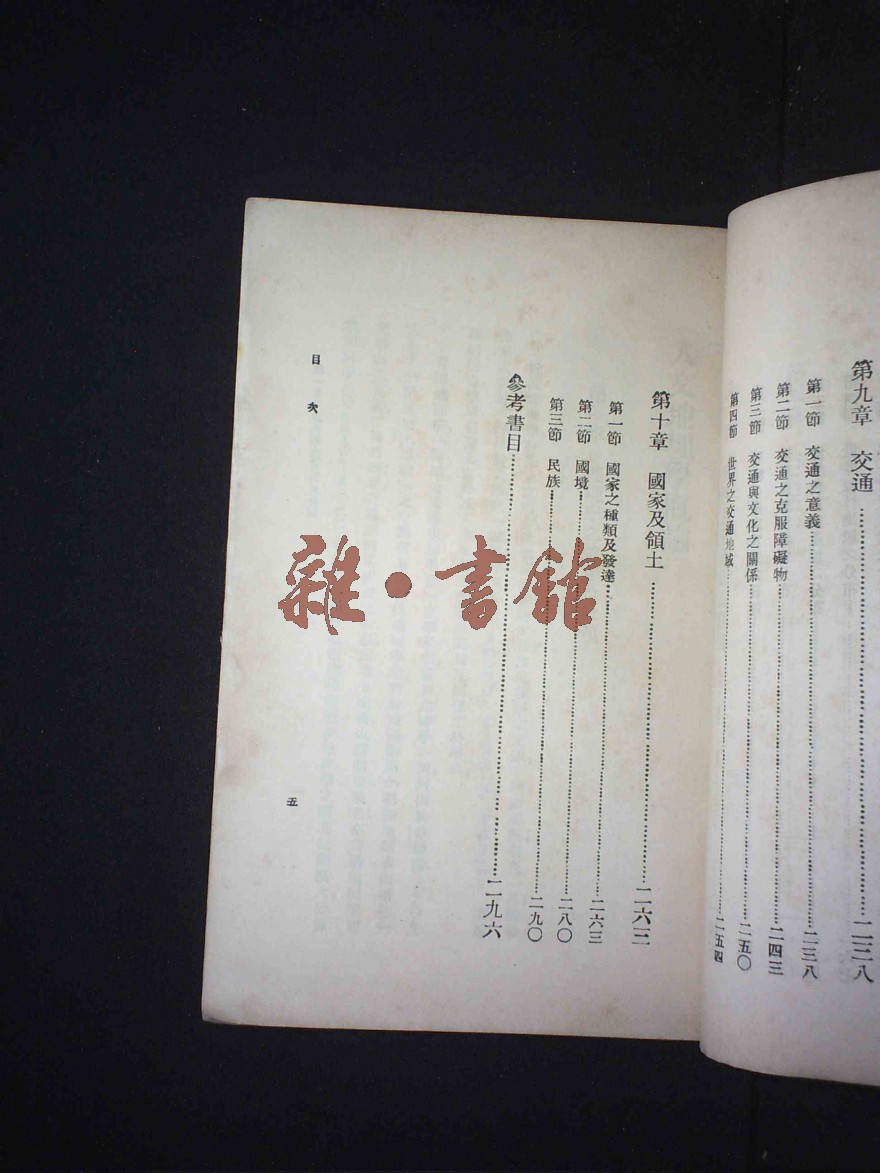 第九章 交通……二三八
第一節 交通之意義……二三八
第二節 交通之克服障礙物……二四三
第三節 交通與文化之關係……二五〇
第四節 世界之交通地域……二五四
第十章 國家及領土……二六三
第一節 國家之種類及發達……二六三
第二節 國境……二八〇
第三節 民族……二九〇
參考書目……二九六
目次
五
雜·書館